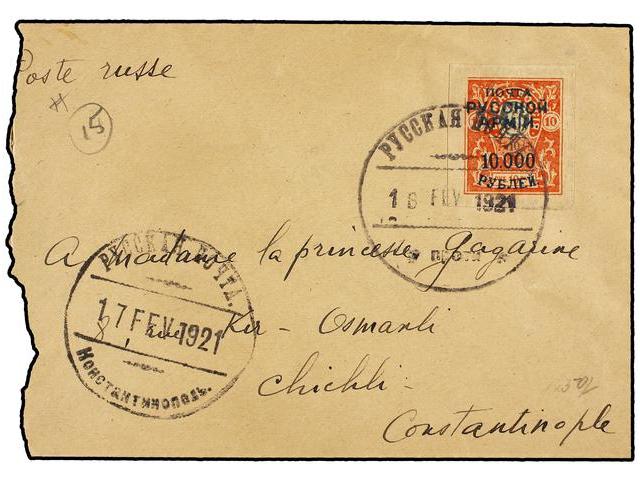 Poste russe
15
ПОЧТА
РУССКОЙ
АРМIИ
10 10
10.000
РУБЛЕЙ
РУССКАЯ
16 FEV 1921
РУССКАЯ ПОЧТА.
17 FEV. 1921
КОНСТАНТИНОПОЛЬ.
A Madame la princesse Gagarine
8, rue Kir - Osmanli
Chichli -
Constantinople